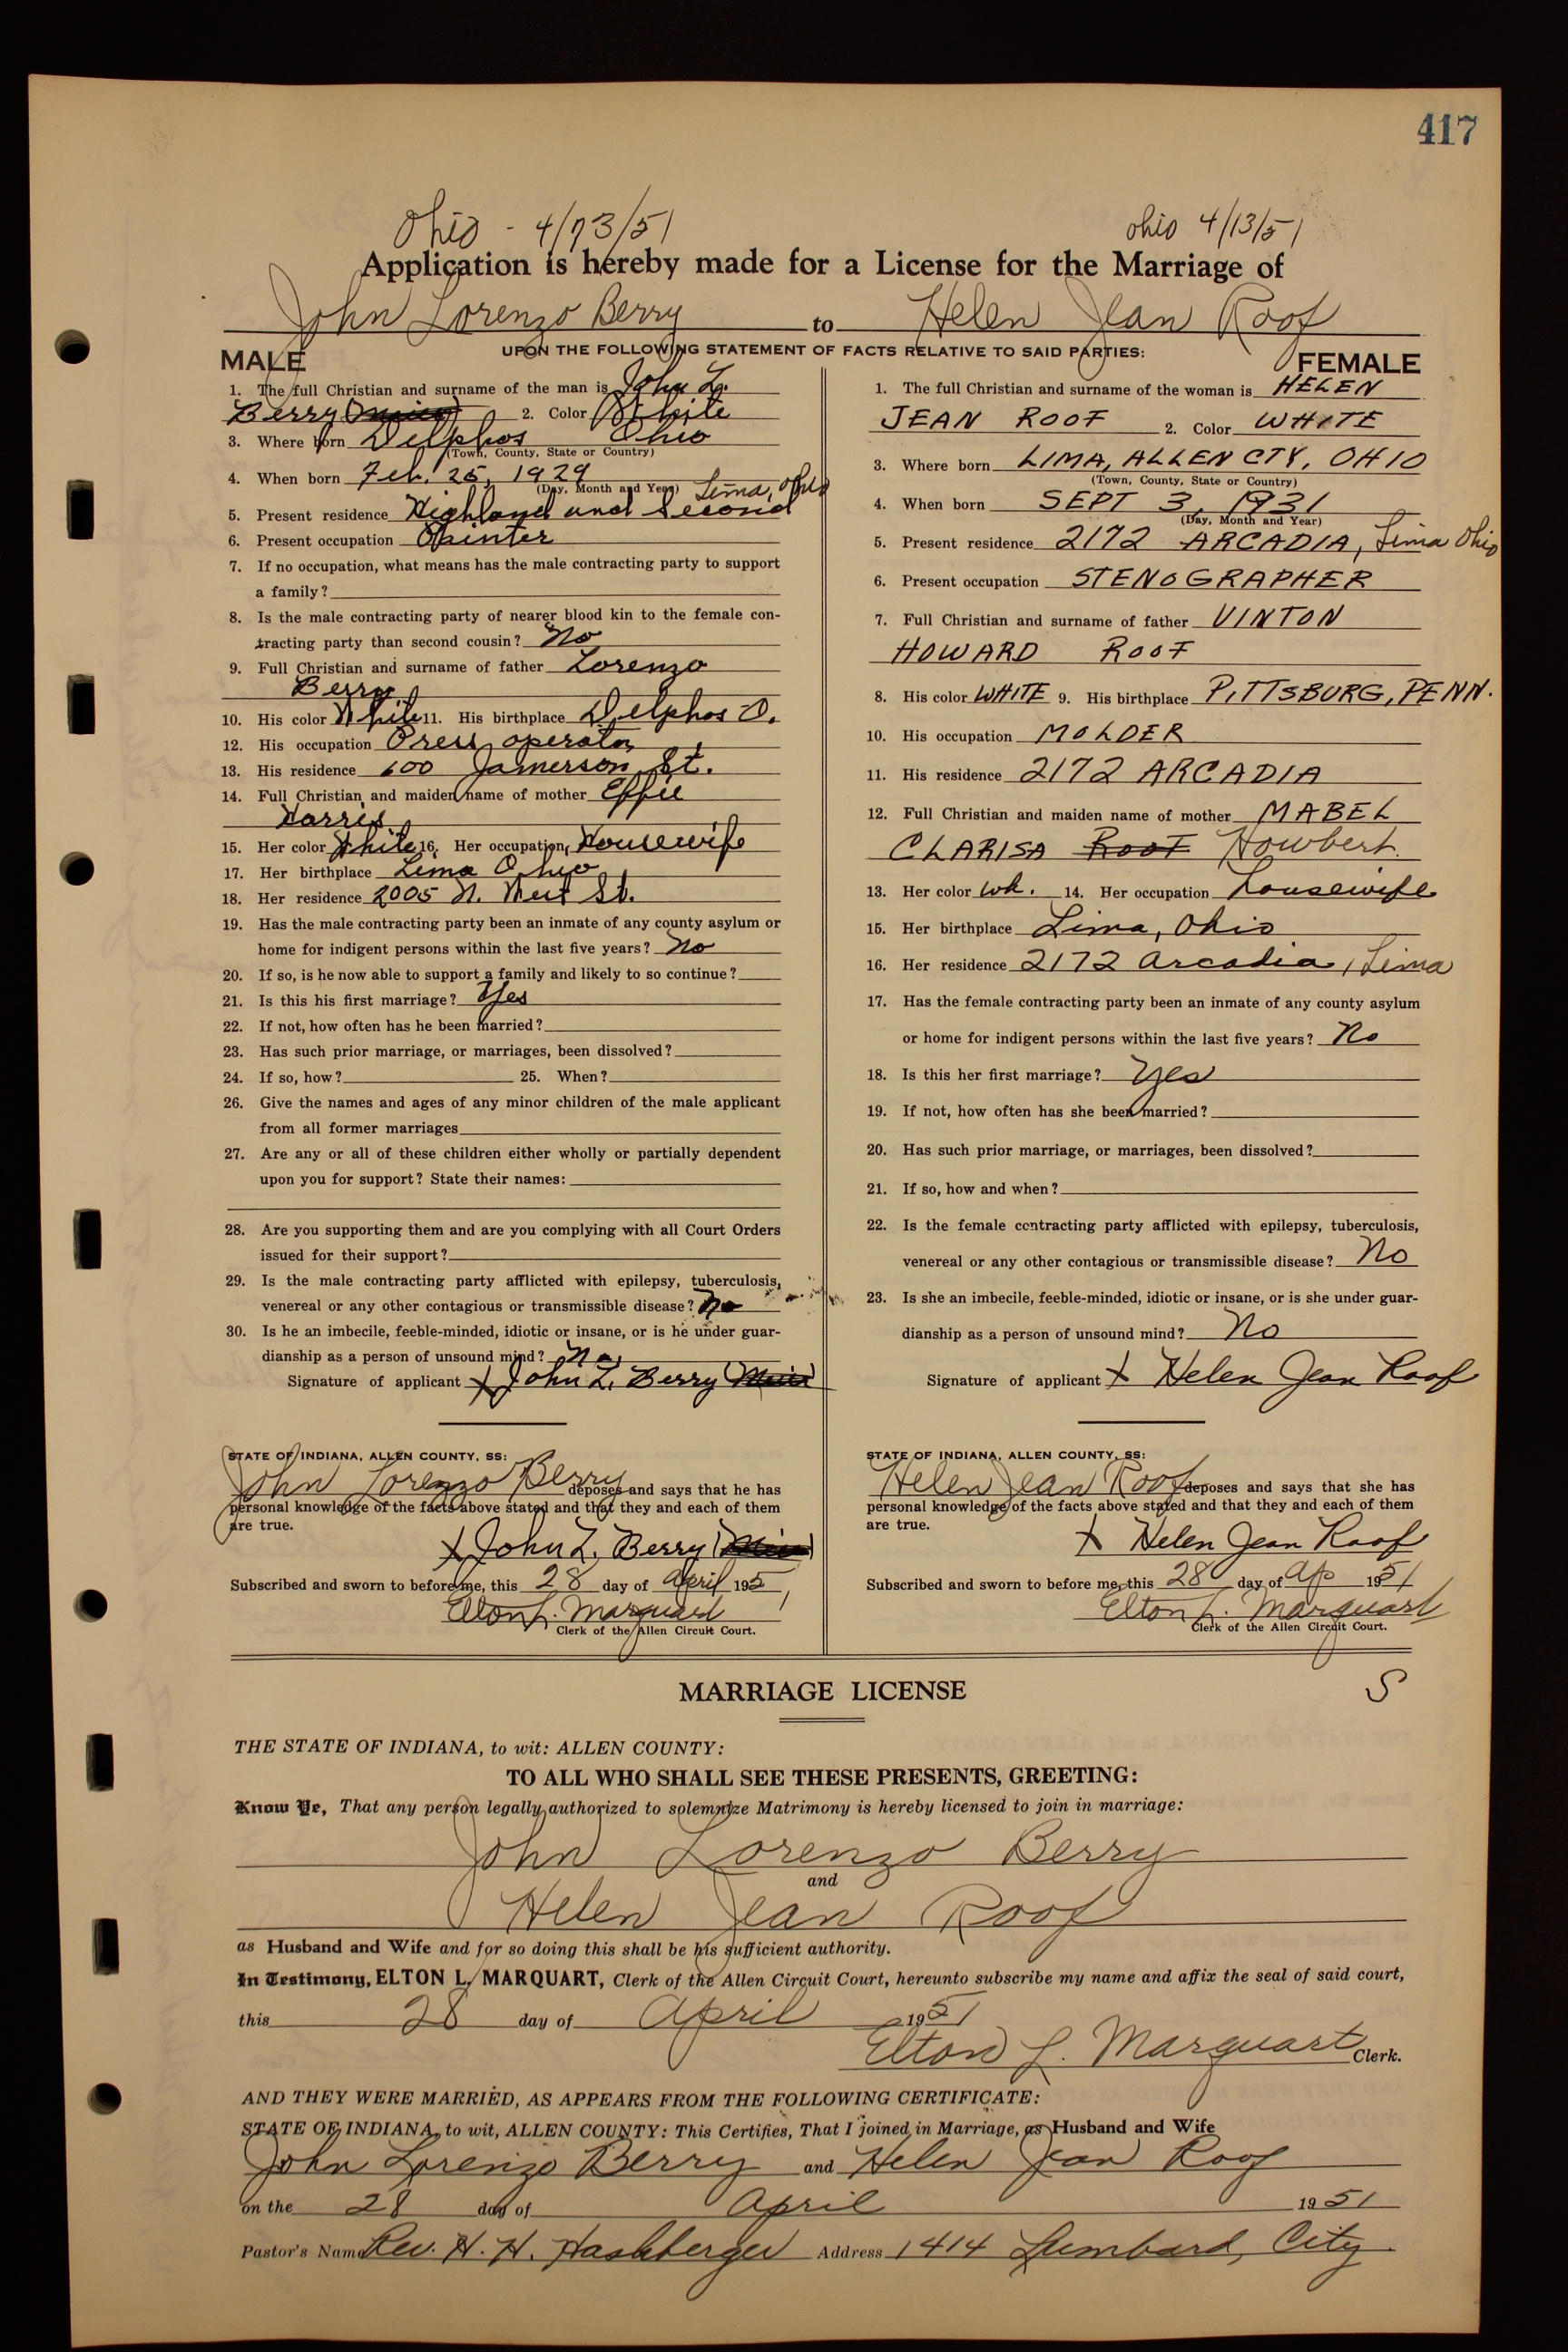 417
Ohio - 4/13/51 ohio 4/13/51
Application is hereby made for a License for the Marriage of
John Lorenzo Berry to Helen Jean Roof
UPON THE FOLLOWING STATEMENT OF FACTS RELATIVE TO SAID PARTIES:
MALE
1. The full Christian and surname of the man is John L.
Berry 2. Color White
3. Where born Delphos Ohio
(Town, County, State or Country)
4. When born Feb. 25, 1929
(Day, Month and Year) Lima, Ohio
5. Present residence Highland and Second
6. Present occupation Printer
7. If no occupation, what means has the male contracting party to support
a family?
8. Is the male contracting party of nearer blood kin to the female con-
tracting party than second cousin? No
9. Full Christian and surname of father Lorenzo
Berry
10. His color White 11. His birthplace Delphos O.
12. His occupation Press operator
13. His residence 600 Jamerson St.
14. Full Christian and maiden name of mother Effie
Harris
15. Her color White 16. Her occupation Housewife
17. Her birthplace Lima Ohio
18. Her residence 2005 N. West St.
19. Has the male contracting party been an inmate of any county asylum or
home for indigent persons within the last five years? No
20. If so, is he now able to support a family and likely to so continue?
21. Is this his first marriage? Yes
22. If not, how often has he been married?
23. Has such prior marriage, or marriages, been dissolved?
24. If so, how? 25. When?
26. Give the names and ages of any minor children of the male applicant
from all former marriages
27. Are any or all of these children either wholly or partially dependent
upon you for support? State their names:
28. Are you supporting them and are you complying with all Court Orders
issued for their support?
29. Is the male contracting party afflicted with epilepsy, tuberculosis,
venereal or any other contagious or transmissible disease? No
30. Is he an imbecile, feeble-minded, idiotic or insane, or is he under guar-
dianship as a person of unsound mind? No
Signature of applicant x John L. Berry
STATE OF INDIANA, ALLEN COUNTY, SS:
John Lorenzo Berry deposes and says that he has
personal knowledge of the facts above stated and that they and each of them
are true.
x John L. Berry
Subscribed and sworn to before me, this 28 day of April 1951
Elton L. Marquart
Clerk of the Allen Circuit Court.
FEMALE
1. The full Christian and surname of the woman is HELEN
JEAN ROOF 2. Color WHITE
3. Where born LIMA, ALLEN CTY, OHIO
(Town, County, State or Country)
4. When born SEPT 3, 1931
(Day, Month and Year)
5. Present residence 2172 ARCADIA, Lima Ohio
6. Present occupation STENOGRAPHER
7. Full Christian and surname of father VINTON
HOWARD ROOF
8. His color WHITE 9. His birthplace PITTSBURG, PENN.
10. His occupation MOLDER
11. His residence 2172 ARCADIA
12. Full Christian and maiden name of mother MABEL
CLARISA ROOF Howbert
13. Her color wh. 14. Her occupation housewife
15. Her birthplace Lima, Ohio
16. Her residence 2172 Arcadia, Lima
17. Has the female contracting party been an inmate of any county asylum
or home for indigent persons within the last five years? No
18. Is this her first marriage? Yes
19. If not, how often has she been married?
20. Has such prior marriage, or marriages, been dissolved?
21. If so, how and when?
22. Is the female contracting party afflicted with epilepsy, tuberculosis,
venereal or any other contagious or transmissible disease? No
23. Is she an imbecile, feeble-minded, idiotic or insane, or is she under guar-
dianship as a person of unsound mind? No
Signature of applicant x Helen Jean Roof
STATE OF INDIANA, ALLEN COUNTY, SS:
Helen Jean Roof deposes and says that she has
personal knowledge of the facts above stated and that they and each of them
are true.
x Helen Jean Roof
Subscribed and sworn to before me, this 28 day of Ap 1951
Elton L. Marquart
Clerk of the Allen Circuit Court.
MARRIAGE LICENSE S
THE STATE OF INDIANA, to wit: ALLEN COUNTY:
TO ALL WHO SHALL SEE THESE PRESENTS, GREETING:
Know Ye, That any person legally authorized to solemnize Matrimony is hereby licensed to join in marriage:
John Lorenzo Berry
and
Helen Jean Roof
as Husband and Wife and for so doing this shall be his sufficient authority.
In Testimony, ELTON L. MARQUART, Clerk of the Allen Circuit Court, hereunto subscribe my name and affix the seal of said court,
this 28 day of April 1951
Elton L. Marquart Clerk.
AND THEY WERE MARRIED, AS APPEARS FROM THE FOLLOWING CERTIFICATE:
STATE OF INDIANA, to wit, ALLEN COUNTY: This Certifies, That I joined in Marriage, as Husband and Wife
John Lorenzo Berry and Helen Jean Roof
on the 28 day of April 1951
Pastor's Name Rev. H. H. Hashberger Address 1414 Lumbard, City